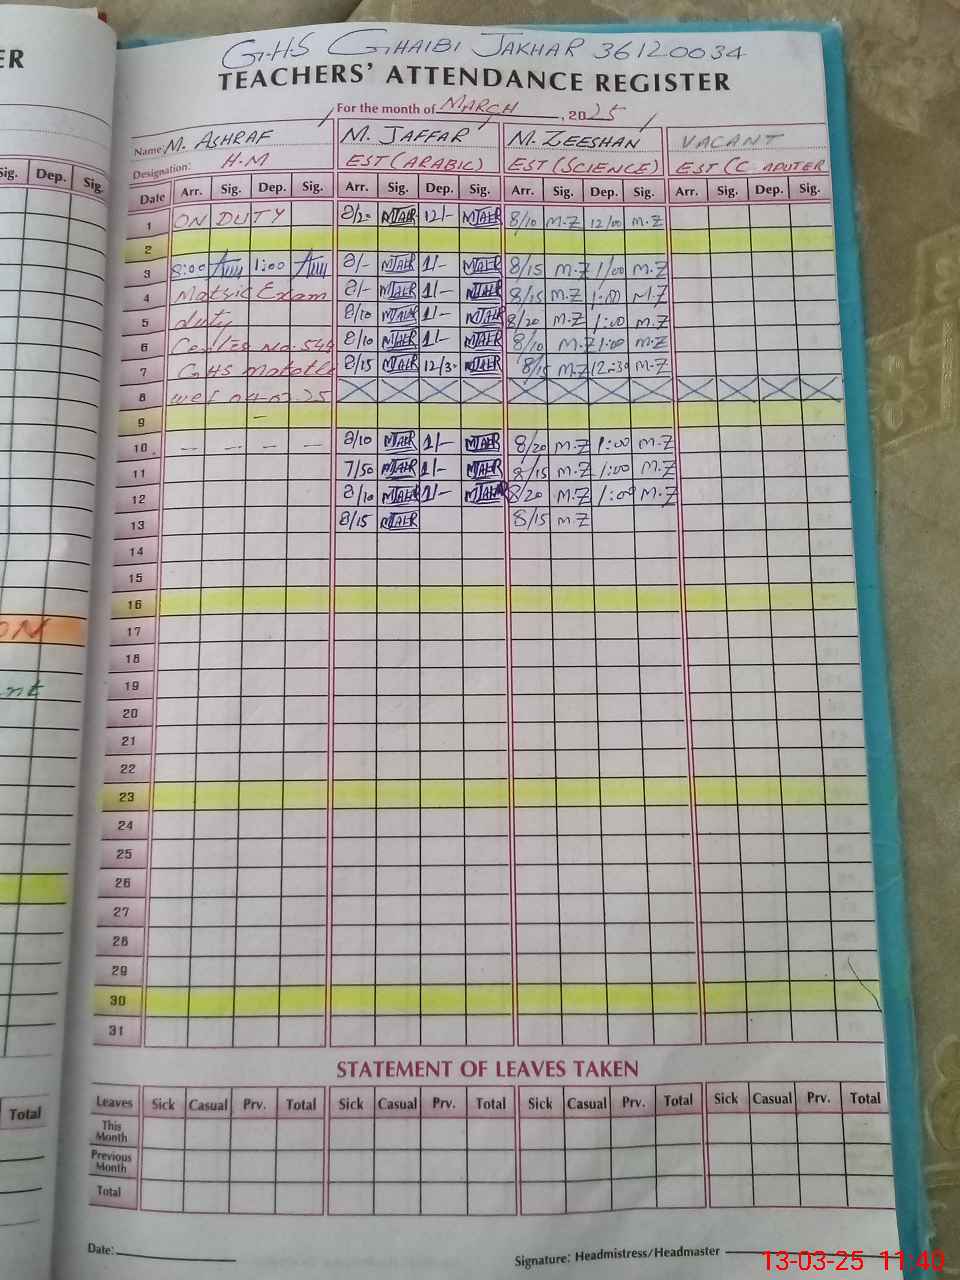 ER
G.H.S GHAIBI JAKHAR 36120034
TEACHERS' ATTENDANCE REGISTER
For the month of MARCH, 2025
Name M. ASHRAF M. JAFFAR M. ZEESHAN VACANT
Designation: H.M EST (ARABIC) EST (SCIENCE)
Sig. Dep. Sig. Date Arr. Sig. Dep. Sig. Arr. Sig. Dep. Sig. Arr. Sig. Dep. Sig. Arr. Sig. Dep. Sig.
1 ON DUTY 12/- 8/10 M.Z 12/00 M.Z
2
3 8:00 1:00 8/- 1/- 8/15 M.Z 1/00 M.Z
4 Matric Exam 8/- 1/- 8/15 M.Z 1:00 M.Z
5 duty 8/10 1/- 8/20 M.Z 1:00 M.Z
6 8/10 1/- 8/10 M.Z 1:00 M.Z
7 GHS 8/15 12/3- 8/15 M.Z 12:30 M.Z
8
9 –
10 – – – – 8/10 1/- 8/20 M.Z 1:00 M.Z
11 7/50 1/- 8/15 M.Z 1:00 M.Z
12 8/10 1/- 8/20 M.Z 1:00 M.Z
13 8/15 8/15 M.Z
14
15
16
17
18
19
20
21
22
23
24
25
26
27
28
29
30
31
STATEMENT OF LEAVES TAKEN
Total Leaves Sick Casual Prv. Total Sick Casual Prv. Total Sick Casual Prv. Total Sick Casual Prv. Total
This Month
Previous Month
Total
Date:
Signature: Headmistress/Headmaster
13-03-25 11:40